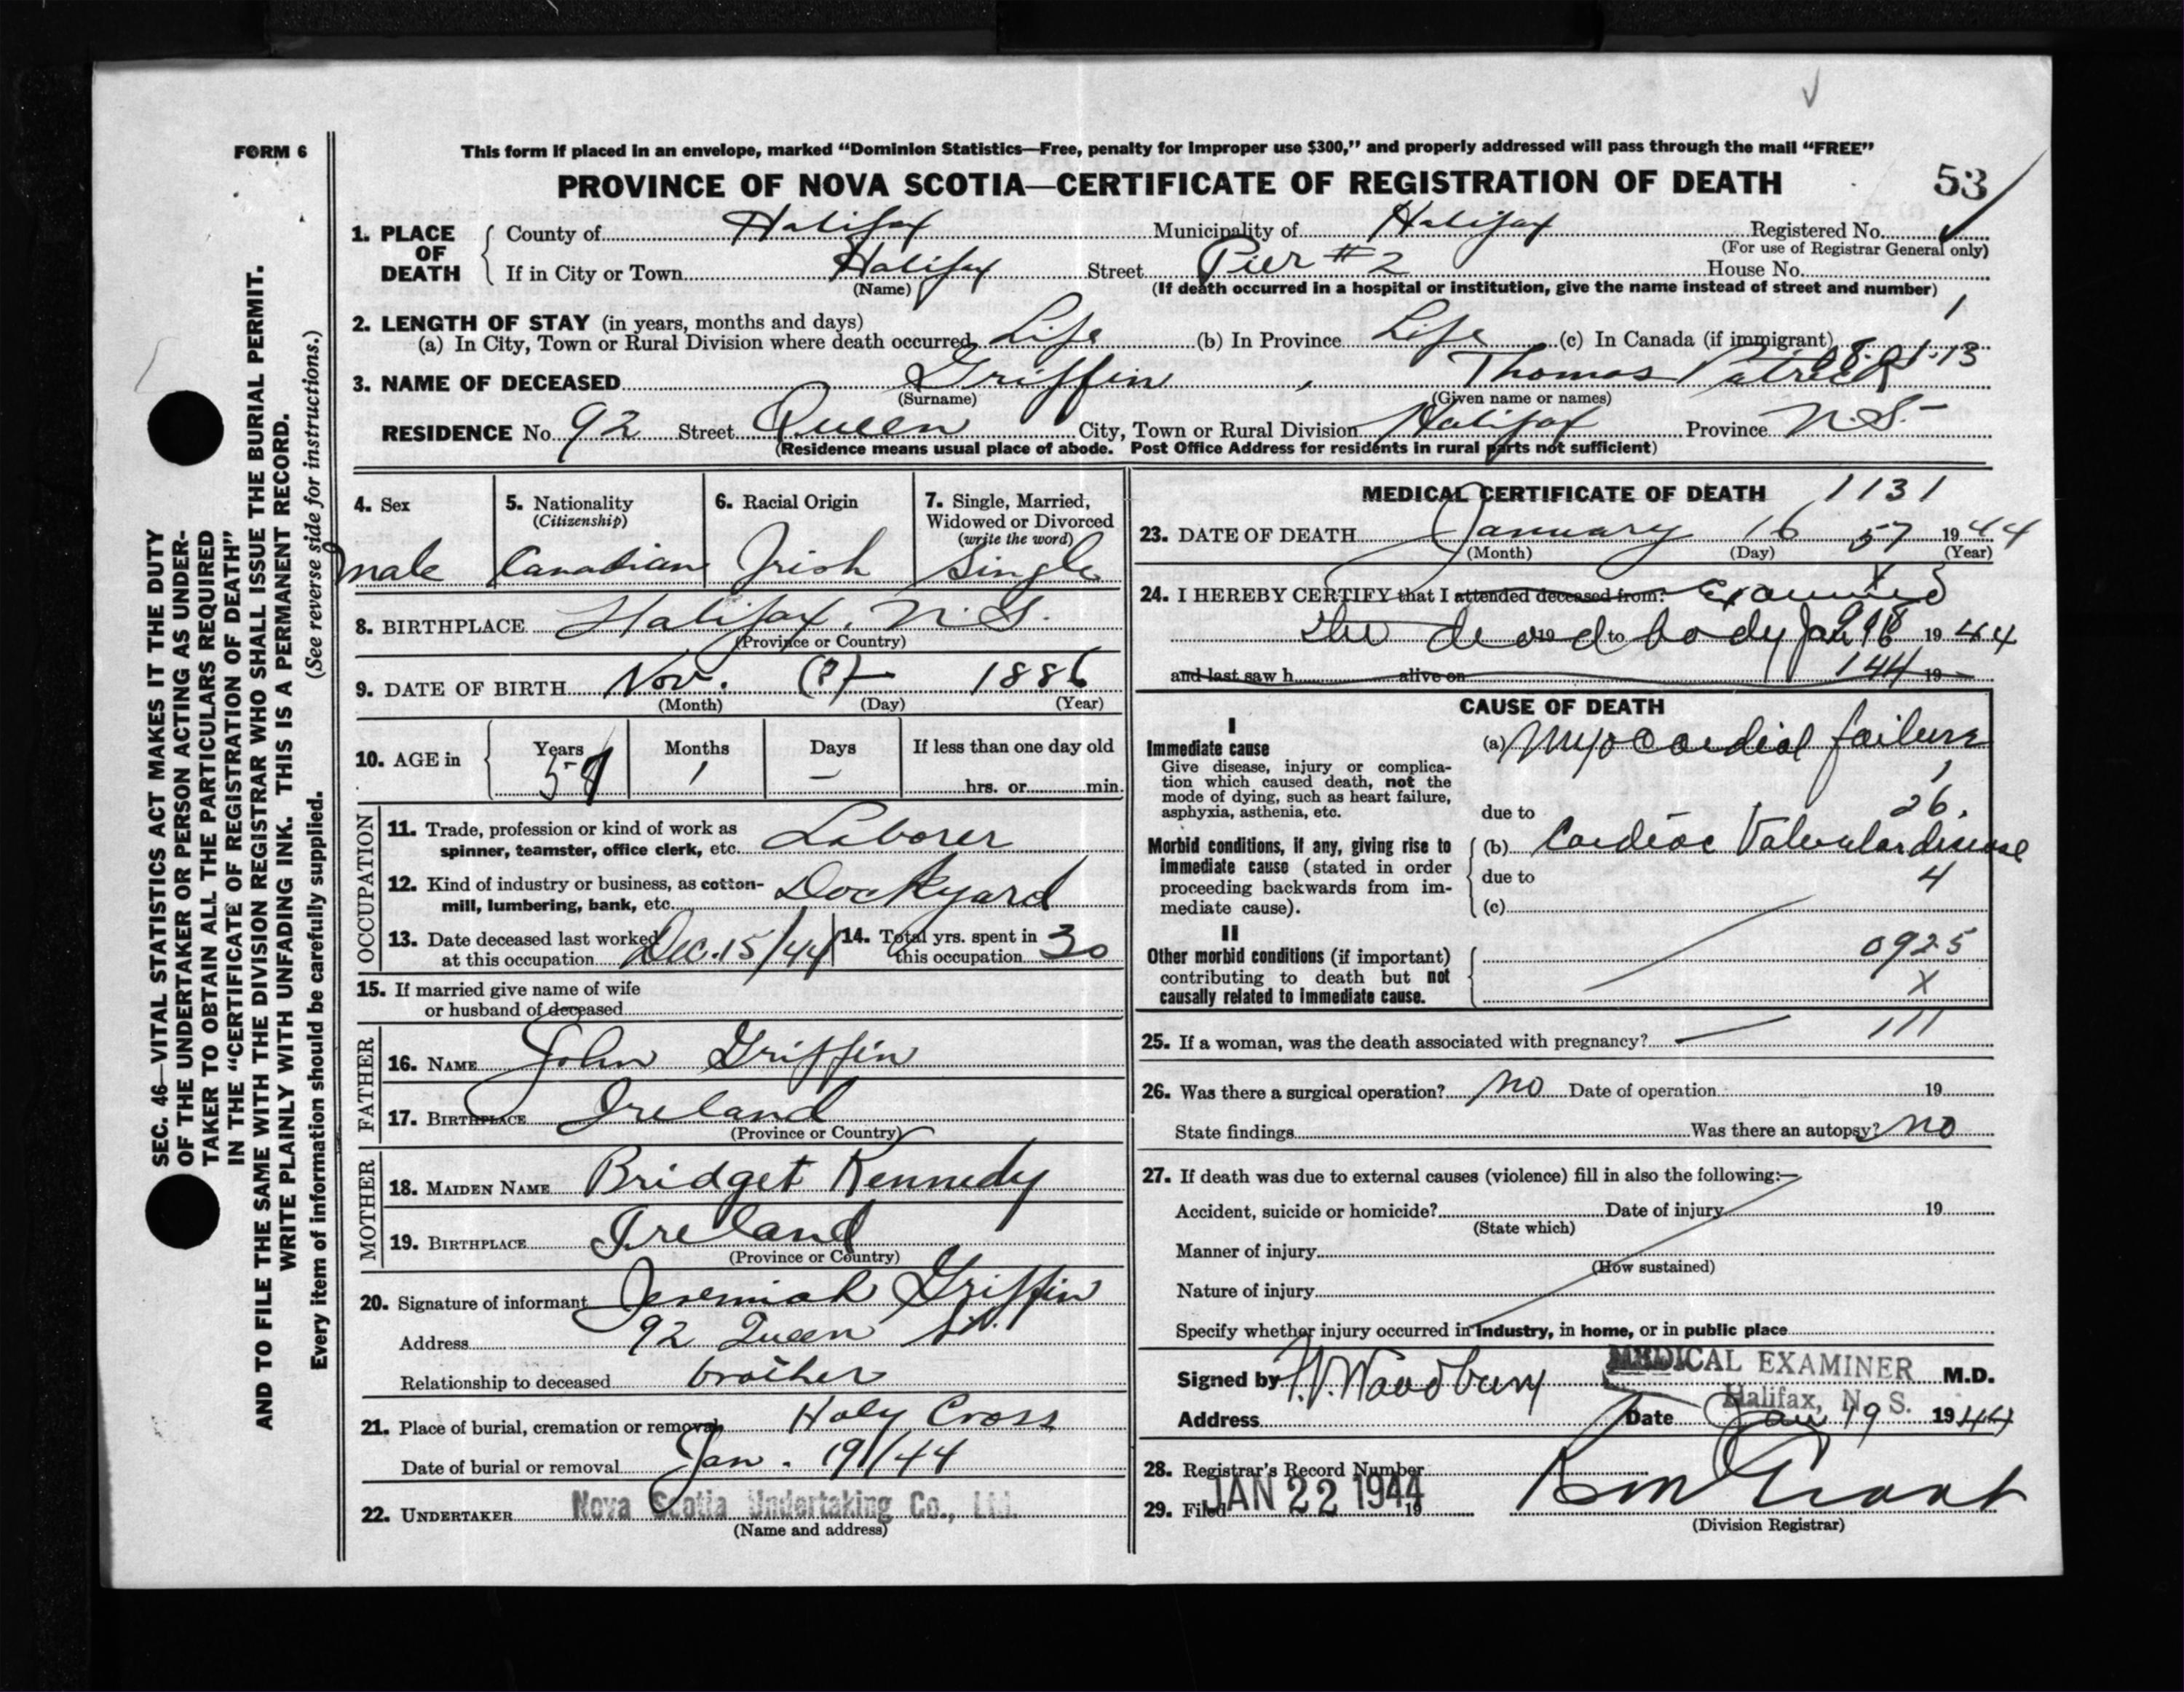 FORM 6
This form if placed in an envelope, marked "Dominion Statistics—Free, penalty for improper use $300," and properly addressed will pass through the mail "FREE"
PROVINCE OF NOVA SCOTIA—CERTIFICATE OF REGISTRATION OF DEATH 53
1. PLACE OF DEATH County of Halifax Municipality of Halifax Registered No.
(For use of Registrar General only)
If in City or Town Halifax Street Pier #2 House No.
(Name) (If death occurred in a hospital or institution, give the name instead of street and number)
2. LENGTH OF STAY (in years, months and days) 1
(a) In City, Town or Rural Division where death occurred Life (b) In Province Life (c) In Canada (if immigrant)
3. NAME OF DECEASED Griffin, Thomas Patrick
(Surname) (Given name or names)
RESIDENCE No. 92 Street Queen City, Town or Rural Division Halifax Province N.S.
(Residence means usual place of abode. Post Office Address for residents in rural parts not sufficient)
4. Sex male
5. Nationality (Citizenship) Canadian
6. Racial Origin Irish
7. Single, Married, Widowed or Divorced (write the word) Single
8. BIRTHPLACE Halifax, N.S.
(Province or Country)
9. DATE OF BIRTH Nov. (?) 1886
(Month) (Day) (Year)
10. AGE in Years 57 Months 1 Days — If less than one day old hrs. or min.
OCCUPATION
11. Trade, profession or kind of work as spinner, teamster, office clerk, etc. Laborer
12. Kind of industry or business, as cotton-mill, lumbering, bank, etc. Dockyard
13. Date deceased last worked at this occupation Dec. 15/44
14. Total yrs. spent in this occupation 30
15. If married give name of wife
or husband of deceased
FATHER
16. NAME John Griffin
17. BIRTHPLACE Ireland
(Province or Country)
MOTHER
18. MAIDEN NAME Bridget Kennedy
19. BIRTHPLACE Ireland
(Province or Country)
20. Signature of informant Jeremiah Griffin
Address 92 Queen St.
Relationship to deceased brother
21. Place of burial, cremation or removal Holy Cross
Date of burial or removal Jan. 19/44
22. UNDERTAKER Nova Scotia Undertaking Co., Ltd.
(Name and address)
MEDICAL CERTIFICATE OF DEATH 1131
23. DATE OF DEATH January 16 57 1944
(Month) (Day) (Year)
24. I HEREBY CERTIFY that I attended deceased from: Examined
the dead body Jan 1944
19 to
and last saw h alive on 144 19
CAUSE OF DEATH
I
Immediate cause (a) Myocardial failure
Give disease, injury or complication which caused death, not the mode of dying, such as heart failure, asphyxia, asthenia, etc. due to 1 26.
Morbid conditions, if any, giving rise to immediate cause (stated in order proceeding backwards from immediate cause). (b) Cardiac Valvular disease
due to 4
(c)
II
Other morbid conditions (if important) contributing to death but not causally related to immediate cause. 0925
X
25. If a woman, was the death associated with pregnancy? — 111
26. Was there a surgical operation? no Date of operation 19
State findings Was there an autopsy? no
27. If death was due to external causes (violence) fill in also the following:—
Accident, suicide or homicide? Date of injury 19
(State which)
Manner of injury
(How sustained)
Nature of injury
Specify whether injury occurred in industry, in home, or in public place
Signed by Woodbury MEDICAL EXAMINER M.D.
Halifax, N. S.
Address Date Jan 19 1944
28. Registrar's Record Number
29. Filed JAN 22 1944 19
(Division Registrar)
SEC. 46—VITAL STATISTICS ACT MAKES IT THE DUTY
OF THE UNDERTAKER OR PERSON ACTING AS UNDER-
TAKER TO OBTAIN ALL THE PARTICULARS REQUIRED
IN THE "CERTIFICATE OF REGISTRATION OF DEATH"
AND TO FILE THE SAME WITH THE DIVISION REGISTRAR WHO SHALL ISSUE THE BURIAL PERMIT.
WRITE PLAINLY WITH UNFADING INK. THIS IS A PERMANENT RECORD.
Every item of information should be carefully supplied. (See reverse side for instructions.)